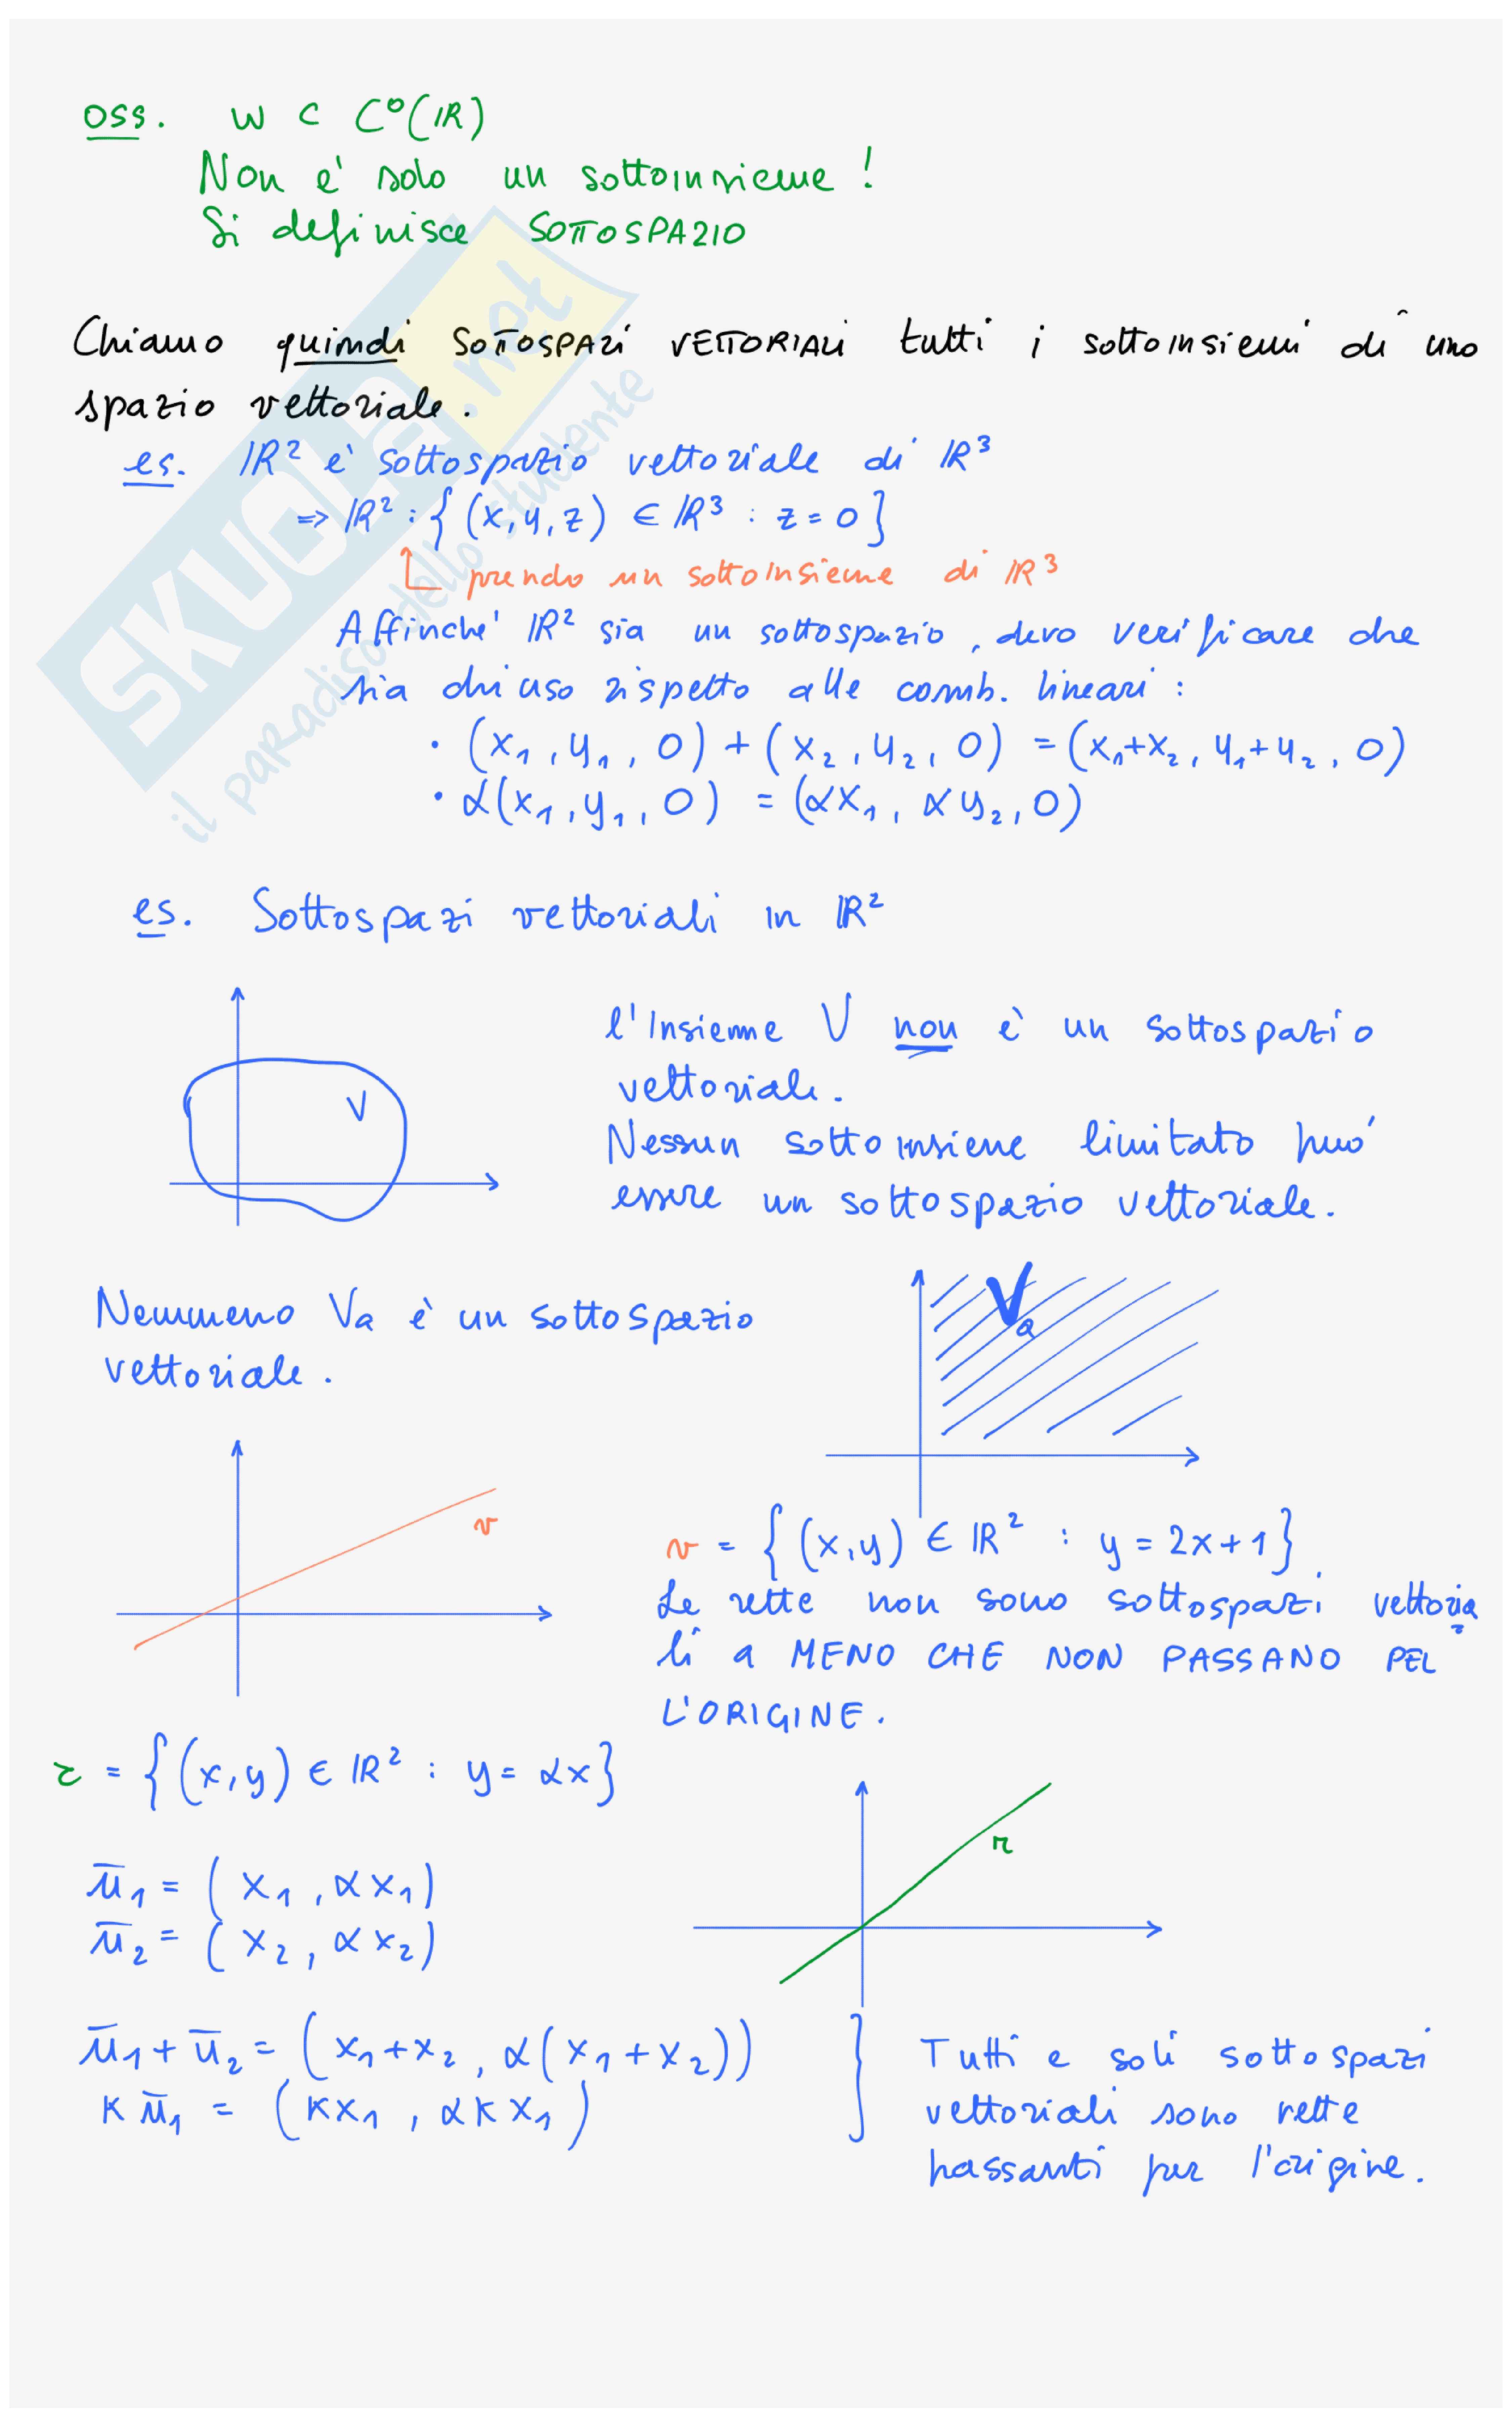 oss. W ⊂ C°(ℝ)
Non è solo un sottoinsieme !
Si definisce SOTTOSPAZIO
Chiamo quindi SOTTOSPAZI VETTORIALI tutti i sottoinsiemi di uno
spazio vettoriale.
es. ℝ² è sottospazio vettoriale di ℝ³
=> ℝ² : { (x, y, z) ∈ ℝ³ : z = 0 }
prendo un sottoinsieme di ℝ³
Affinché ℝ² sia un sottospazio, devo verificare che
sia chiuso rispetto alle comb. lineari :
• (x₁, y₁, 0) + (x₂, y₂, 0) = (x₁+x₂, y₁+y₂, 0)
• α(x₁, y₁, 0) = (αx₁, αy₂, 0)
es. Sottospazi vettoriali in ℝ²
V
l'insieme V non è un sottospazio
vettoriale.
Nessun sottoinsieme limitato può
essere un sottospazio vettoriale.
Nemmeno Va è un sottospazio
vettoriale.
Va
v
v = { (x,y) ∈ ℝ² : y = 2x+1 }
Le rette non sono sottospazi vettoria
li a MENO CHE NON PASSANO PEL
L'ORIGINE.
r = { (x,y) ∈ ℝ² : y = αx }
r
ū₁ = ( x₁, αx₁)
ū₂ = ( x₂, αx₂)
ū₁ + ū₂ = ( x₁+x₂, α(x₁+x₂))
kū₁ = ( kx₁, αkx₁ )
Tutti e soli sottospazi
vettoriali sono rette
passanti per l'origine.
SKUOLA.net
il paradiso dello studente